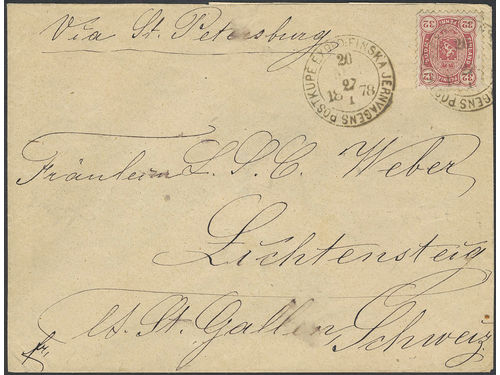 Via St. Petersburg
POSTKUPÉ EXP. FINSKA JERNVÄGENS
20
27
1878
1
32 32
32 32
Fräulein L. S. C. Weber
Lichtensteig
Ct. St. Gallen, Schweiz
fr.